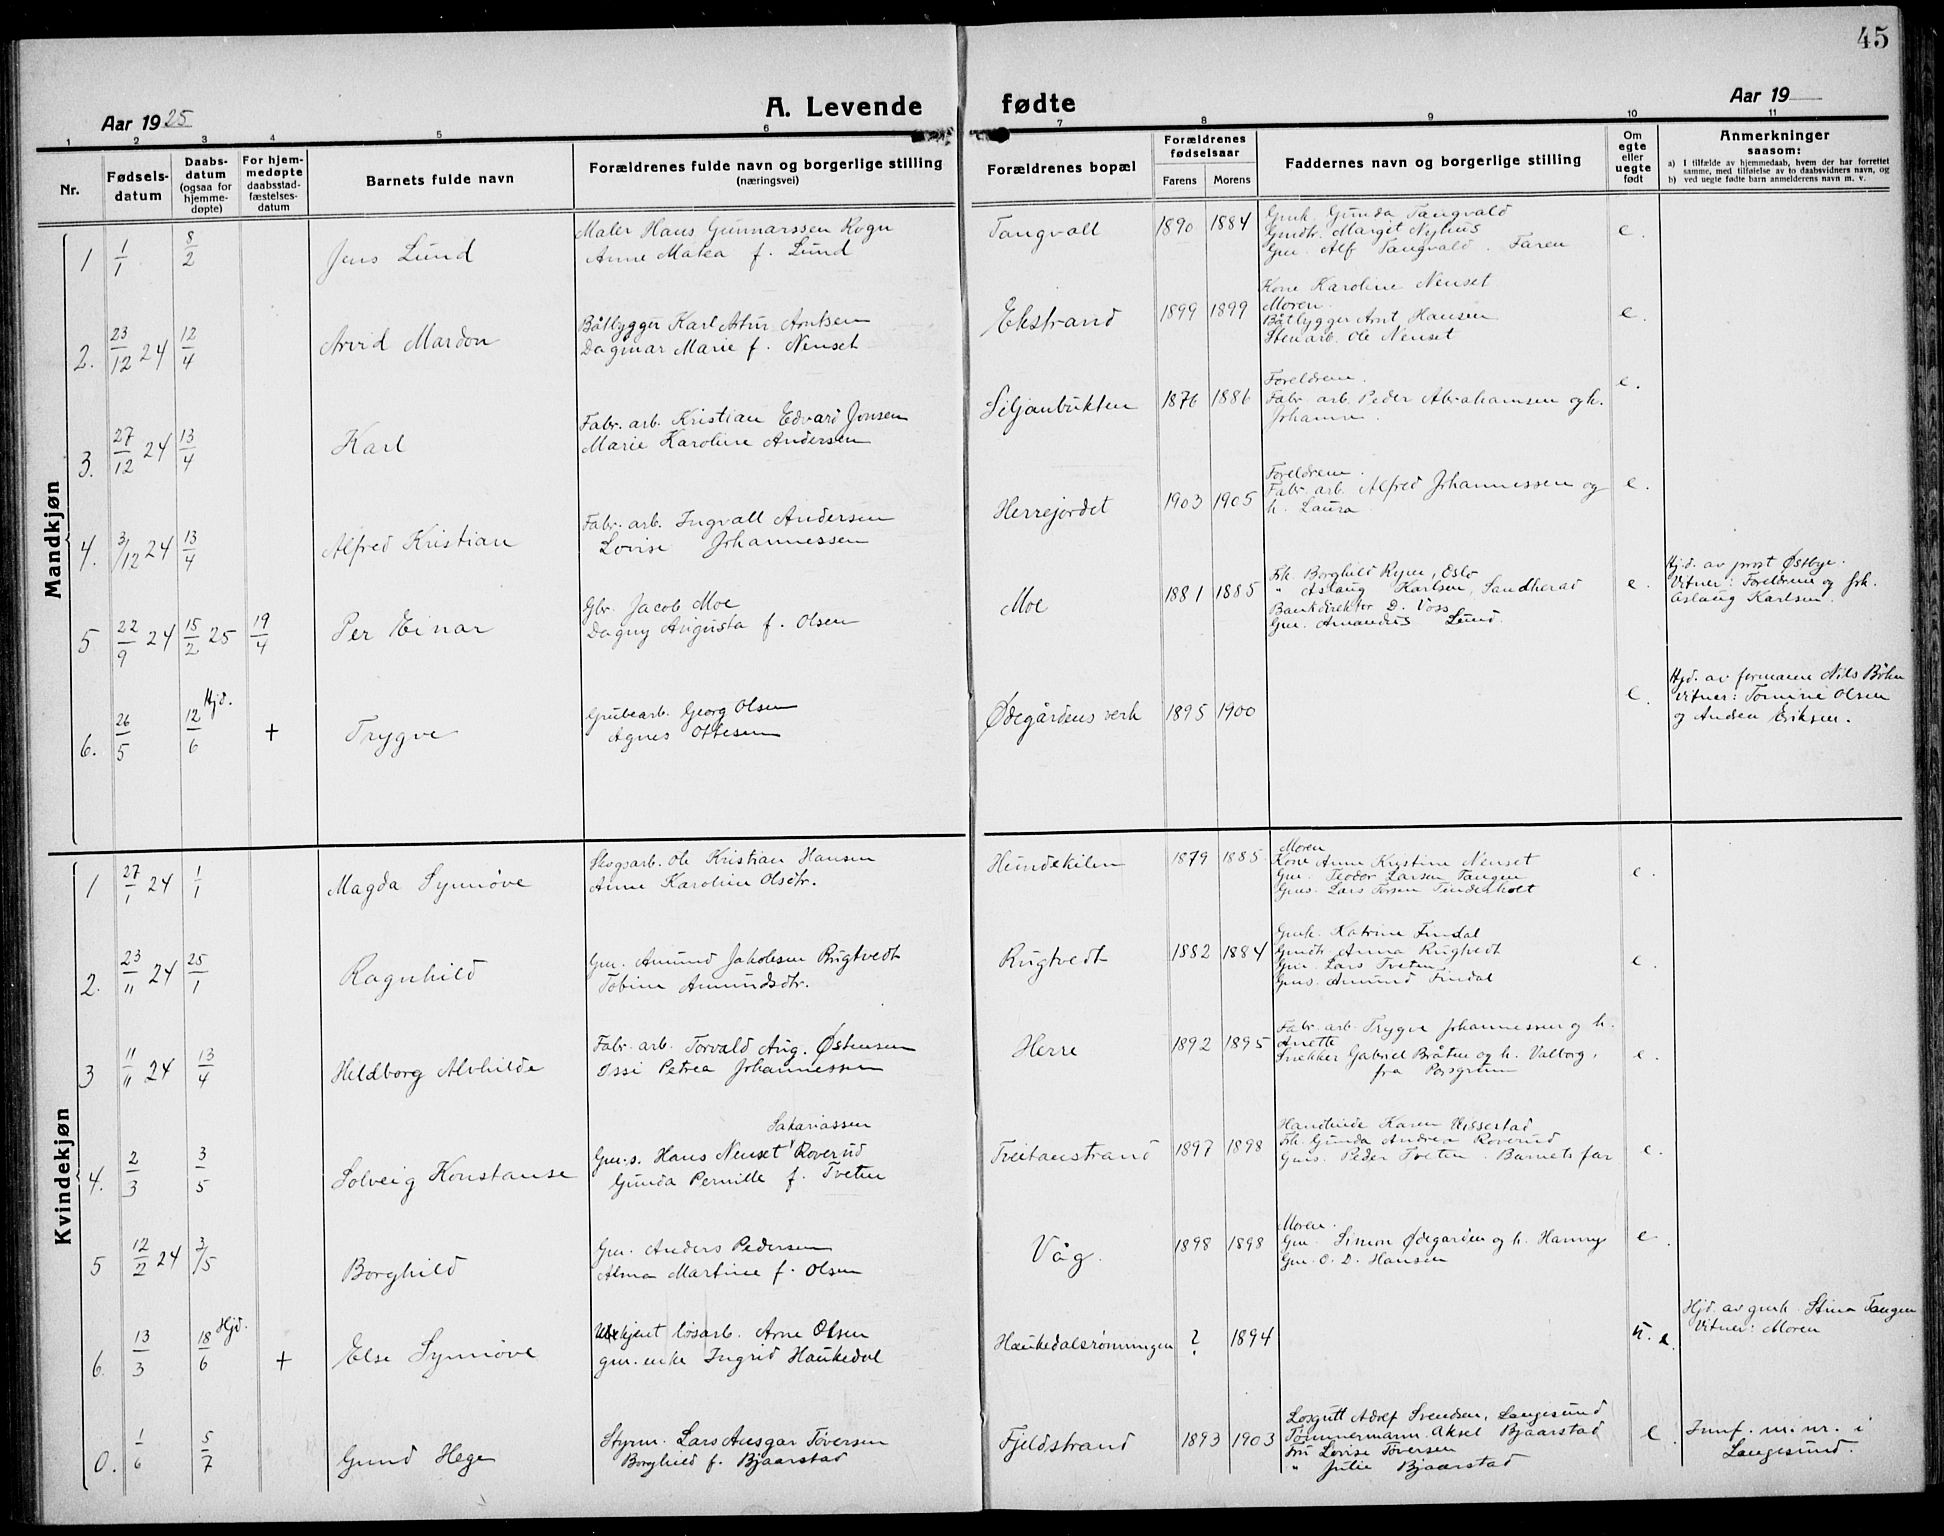 45
Aar 1925
A. Levende fødte
Aar 19
1 2 3 4 5 6 7 8 9 10 11
Nr.
Fødsels-
datum
Daabs-
datum
(ogsaa for
hjemme-
døpte)
For hjem-
medøpte
daabsstad-
fæstelses-
datum
Barnets fulde navn
Forældrenes fulde navn og borgerlige stilling
(næringsvei)
Forældrenes bopæl
Forældrenes
fødselsaar
Farens
Morens
Faddernes navn og borgerlige stilling
Om
egte
eller
uegte
født
Anmerkninger
saasom:
a) I tilfælde av hjemmedaab, hvem der har forrettet
samme, med tilføielse av to daabsvidners navn, og
b) ved uegte fødte barn anmelderens navn m. v.
Mandkjøn
1 1/1 8/2 Jens Lund
Maler Hans Gunnarssen Rogn
Anne Matea f. Lund
Tangvall 1890 1884
Gmk. Gunda Tangvald
Gmdtr. Margit Nyhus
Gm. Alf Tangvald. Faren
e.
2. 23/12 24 12/4 Arvid Mardon
Båtbygger Karl Artur Arntsen
Dagmar Marie f. Nenset
Ekstrand 1899 1899
Kone Karoline Nenset
Moren.
Båtbygger Arnt Hansen
Stenarb. Ole Nenset
e.
3. 27/12 24 13/4 Karl
Fabr. arb. Kristian Edvard Jonsen
Marie Karoline Andersen
Siljanbukten 1876 1886
Foreldrene.
Fabr. arb. Peder Abrahamsen og h.
Johanne.
e.
4. 3/12 24 13/4 Alfred Kristian
Fabr. arb. Ingvall Andersen
Lovise Johannessen
Herrejordet 1903 1905
Foreldrene.
Fabr. arb. Alfred Johannessen og
h. Laura
e.
5 22/9 24 15/2 25 19/4 Per Einar
Gbr. Jacob Moe
Dagny Augusta f. Olsen
Moe 1881 1885
Frk. Borghild Ryen, Oslo
" Aslaug Karlsen, Sandherad
Bankdirektør D. Voss
Gm. Amandus Lund.
e.
Hj.d. av prost Østbye.
Vitner: Foreldrene og frk.
Aslaug Karlsen.
6. 26/5 12/6 Hjd. + Trygve
Grubearb. Georg Olsen
Agnes Ottesen
Ødegårdens verk 1895 1900
e.
Hjd. av formann Nils Bøhn
Vitner: Tomine Olsen
og Andsen Eriksen.
Kvindekjøn
1 27/1 24 1/1 Magda Synnøve
Skogsarb. Ole Kristian Hansen
Anne Karoline Olsdtr.
Hundekilen 1879 1885
Moren
Kone Anne Kristine Nenset
Gm. Teodor Larsen Tangen
Gms. Lars Torsen Tinderholt
e.
2. 23/11 24 25/1 Ragnhild
Gm. Amund Jakobsen Rugtvedt
Tobine Amundsdtr.
Rugtvedt 1882 1884
Gmk. Katrine Findal
Gmdtr. Anna Rugtvedt
Gm. Lars Tveten
Gms. Amund Findal
e.
3 11/11 24 13/4 Hildborg Alvhilde
Fabr. arb. Torvald Aug. Østensen
Ossi Petrea Johannessen
Herre 1892 1895
Fabr. arb. Trygve Johannessen og h.
Anette
Snekker Gabriel Bråten og h. Valborg,
fra Porsgrunn
e.
4. 2/3 3/5 Solveig Konstanse
Sakariassen
Gm.s. Hans Nenset Roverud
Gunda Pernille f. Tveten
Tveitanstrand 1897 1898
Handlende Karen Vissestad
Frk. Gunda Andrea Roverud
Gms. Peder Tveten. Barnets far
e.
5 12/2 24 3/5 Borghild
Gm. Anders Pedersen
Alma Martine f. Olsen
Våg. 1898 1898
Moren.
Gm. Simon Ødegården og h. Hanny
Gm. O. D. Hansen
e.
6. 13/3 18/6 Hjd. + Else Synnøve
Ukjent løsarb. Arne Olsen
gm. enke Ingrid Haukedal
Haukedalsrønningen ? 1894
u. e.
Hjd. av gmk. Stina Tangen
Vitner: Moren
0. 1/6 5/7 Gund Hege
Styrm. Lars Ansgar Tøversen
Borghild f. Bjaarstad
Fjeldstrand 1893 1903
Losgutt Adolf Svendsen, Langesund
Tømmermann Aksel Bjaarstad
Fru Lovise Tøversen
" Julie Bjaarstad
e.
Innf. m. nr. i
Langesund.